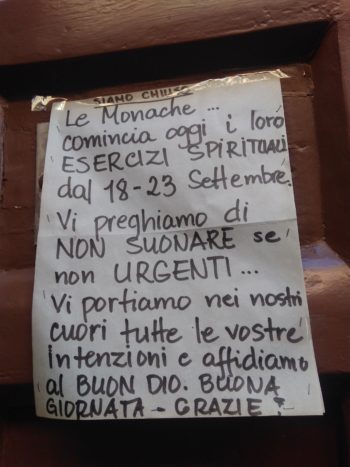 SIAMO CHIUSE
Le Monache ...
comincia oggi i loro
ESERCIZI SPIRITUALI
dal 18-23 Settembre.
Vi preghiamo di
NON SUONARE se
non URGENTI ...
Vi portiamo nei nostri
cuori tutte le vostre
intenzioni e affidiamo
al BUON DIO. BUONA
GIORNATA - GRAZIE!